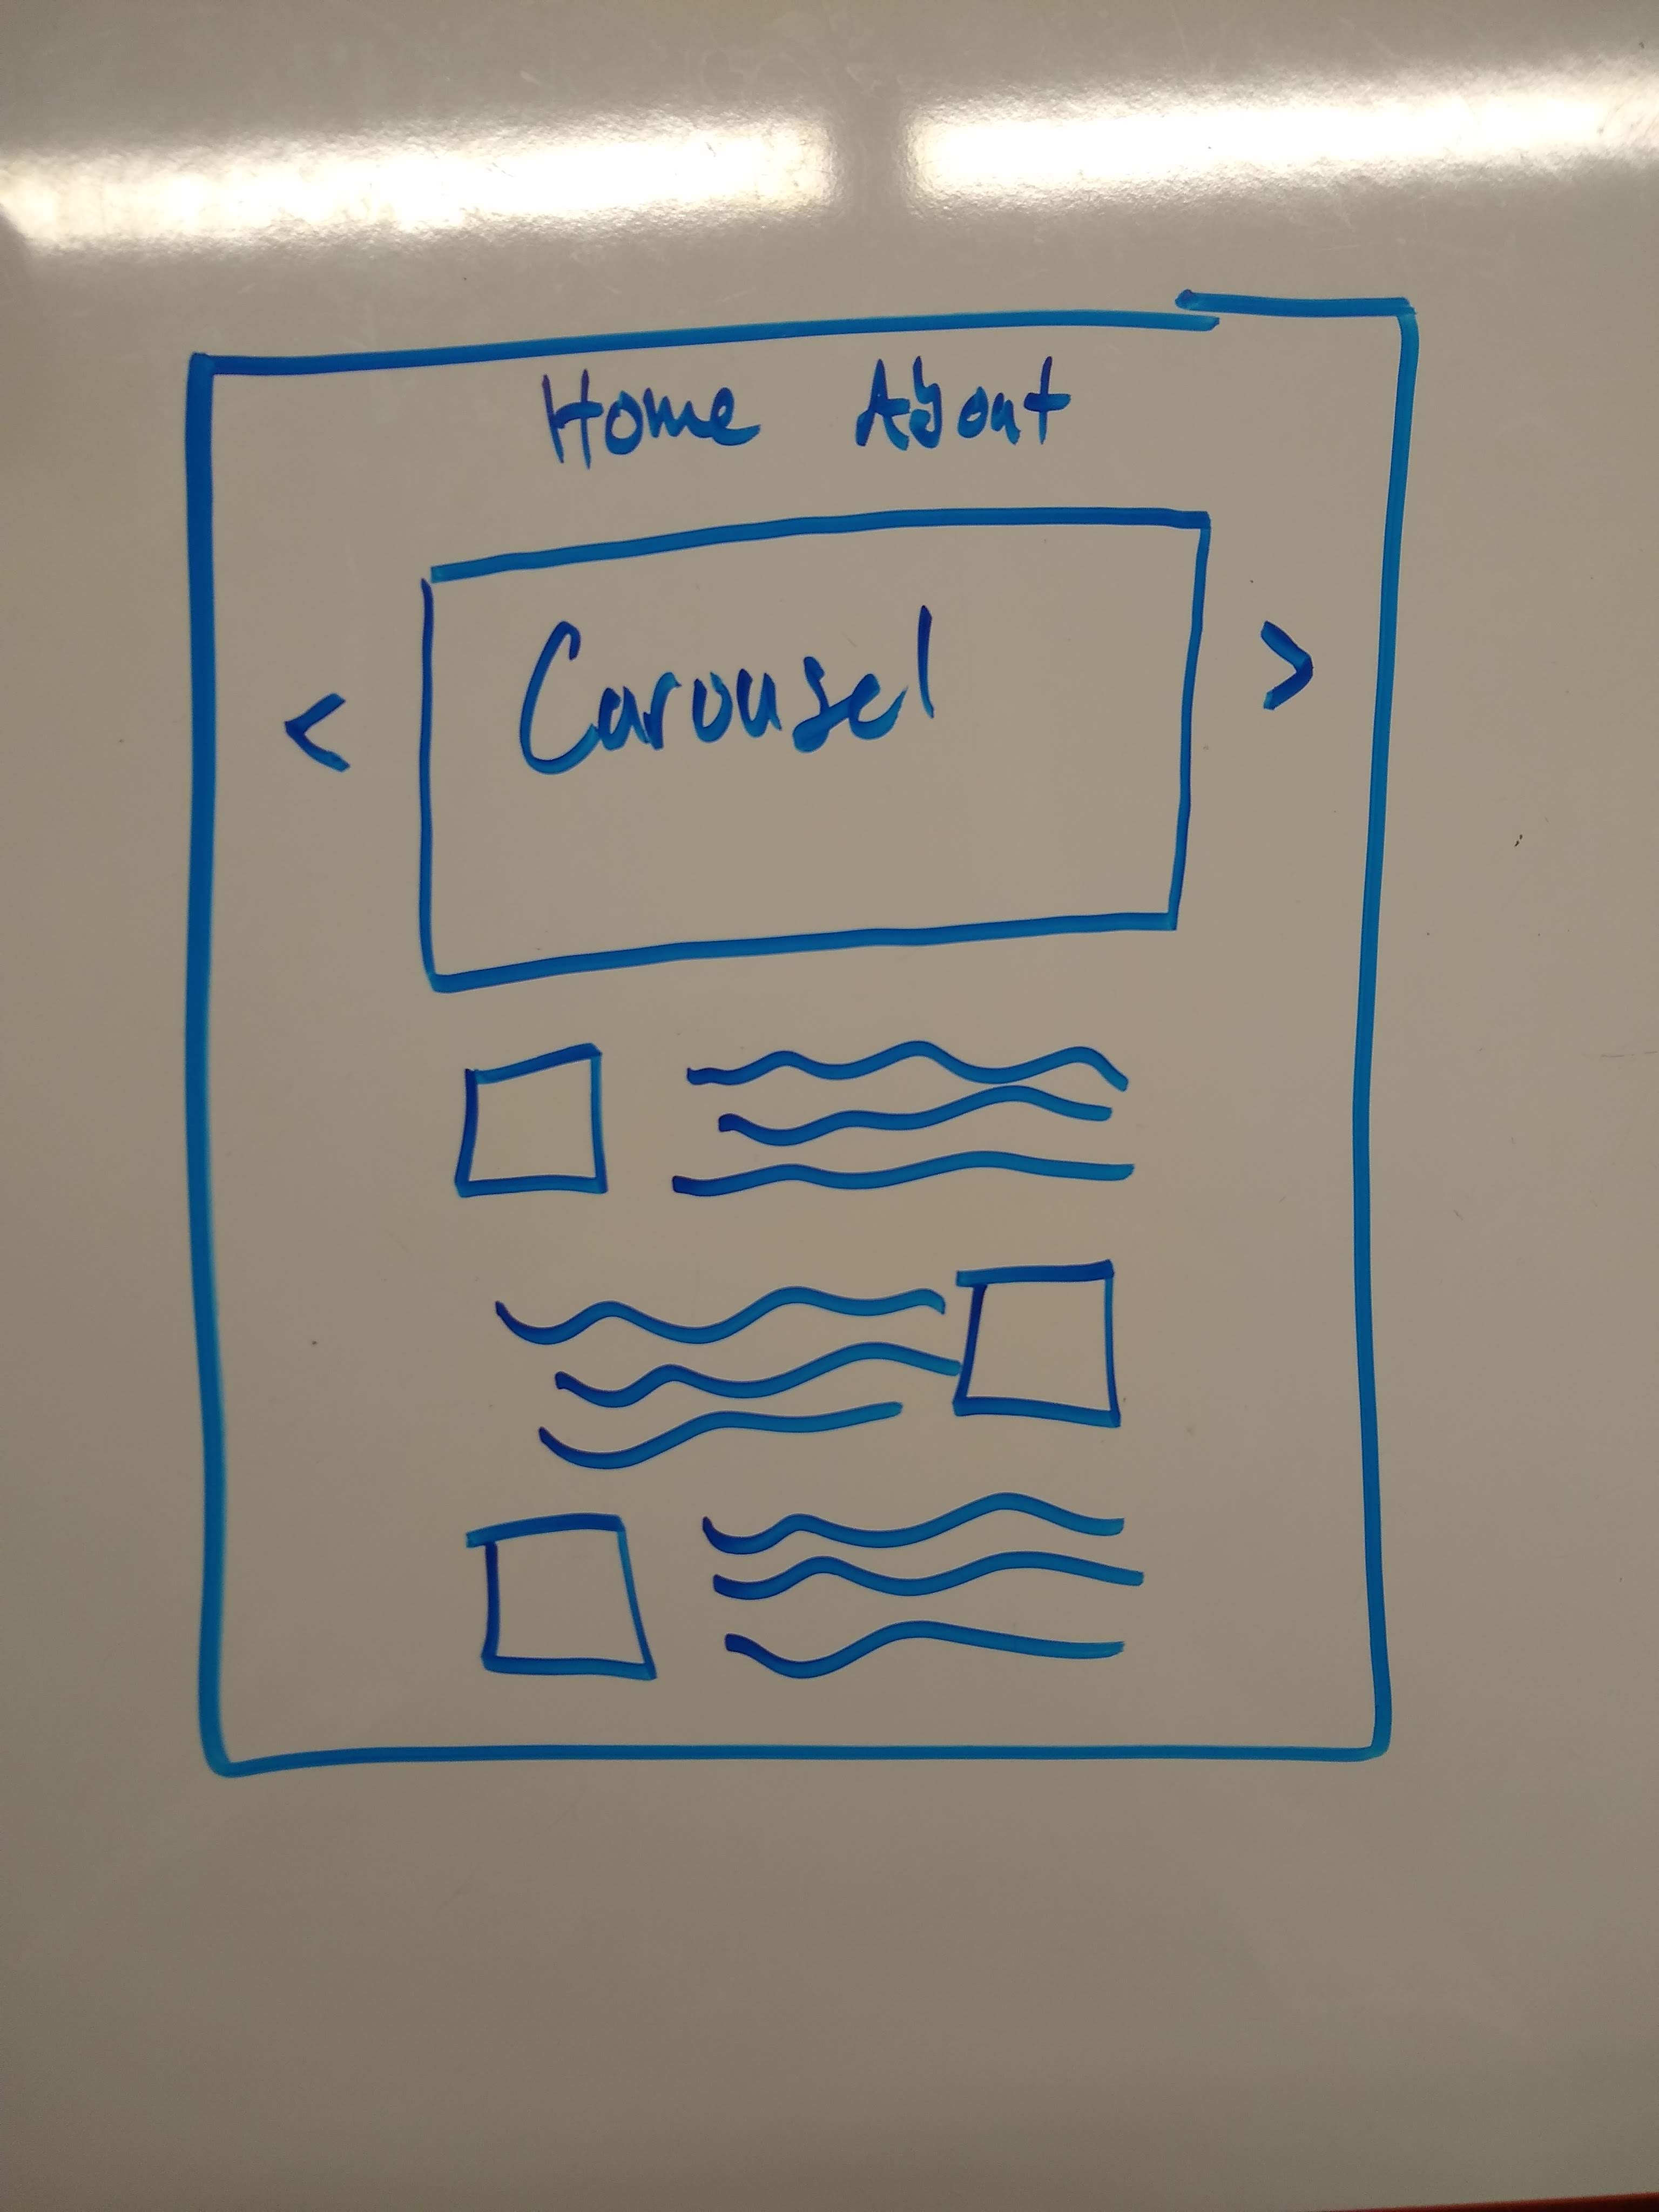 Home About
< Carousel >